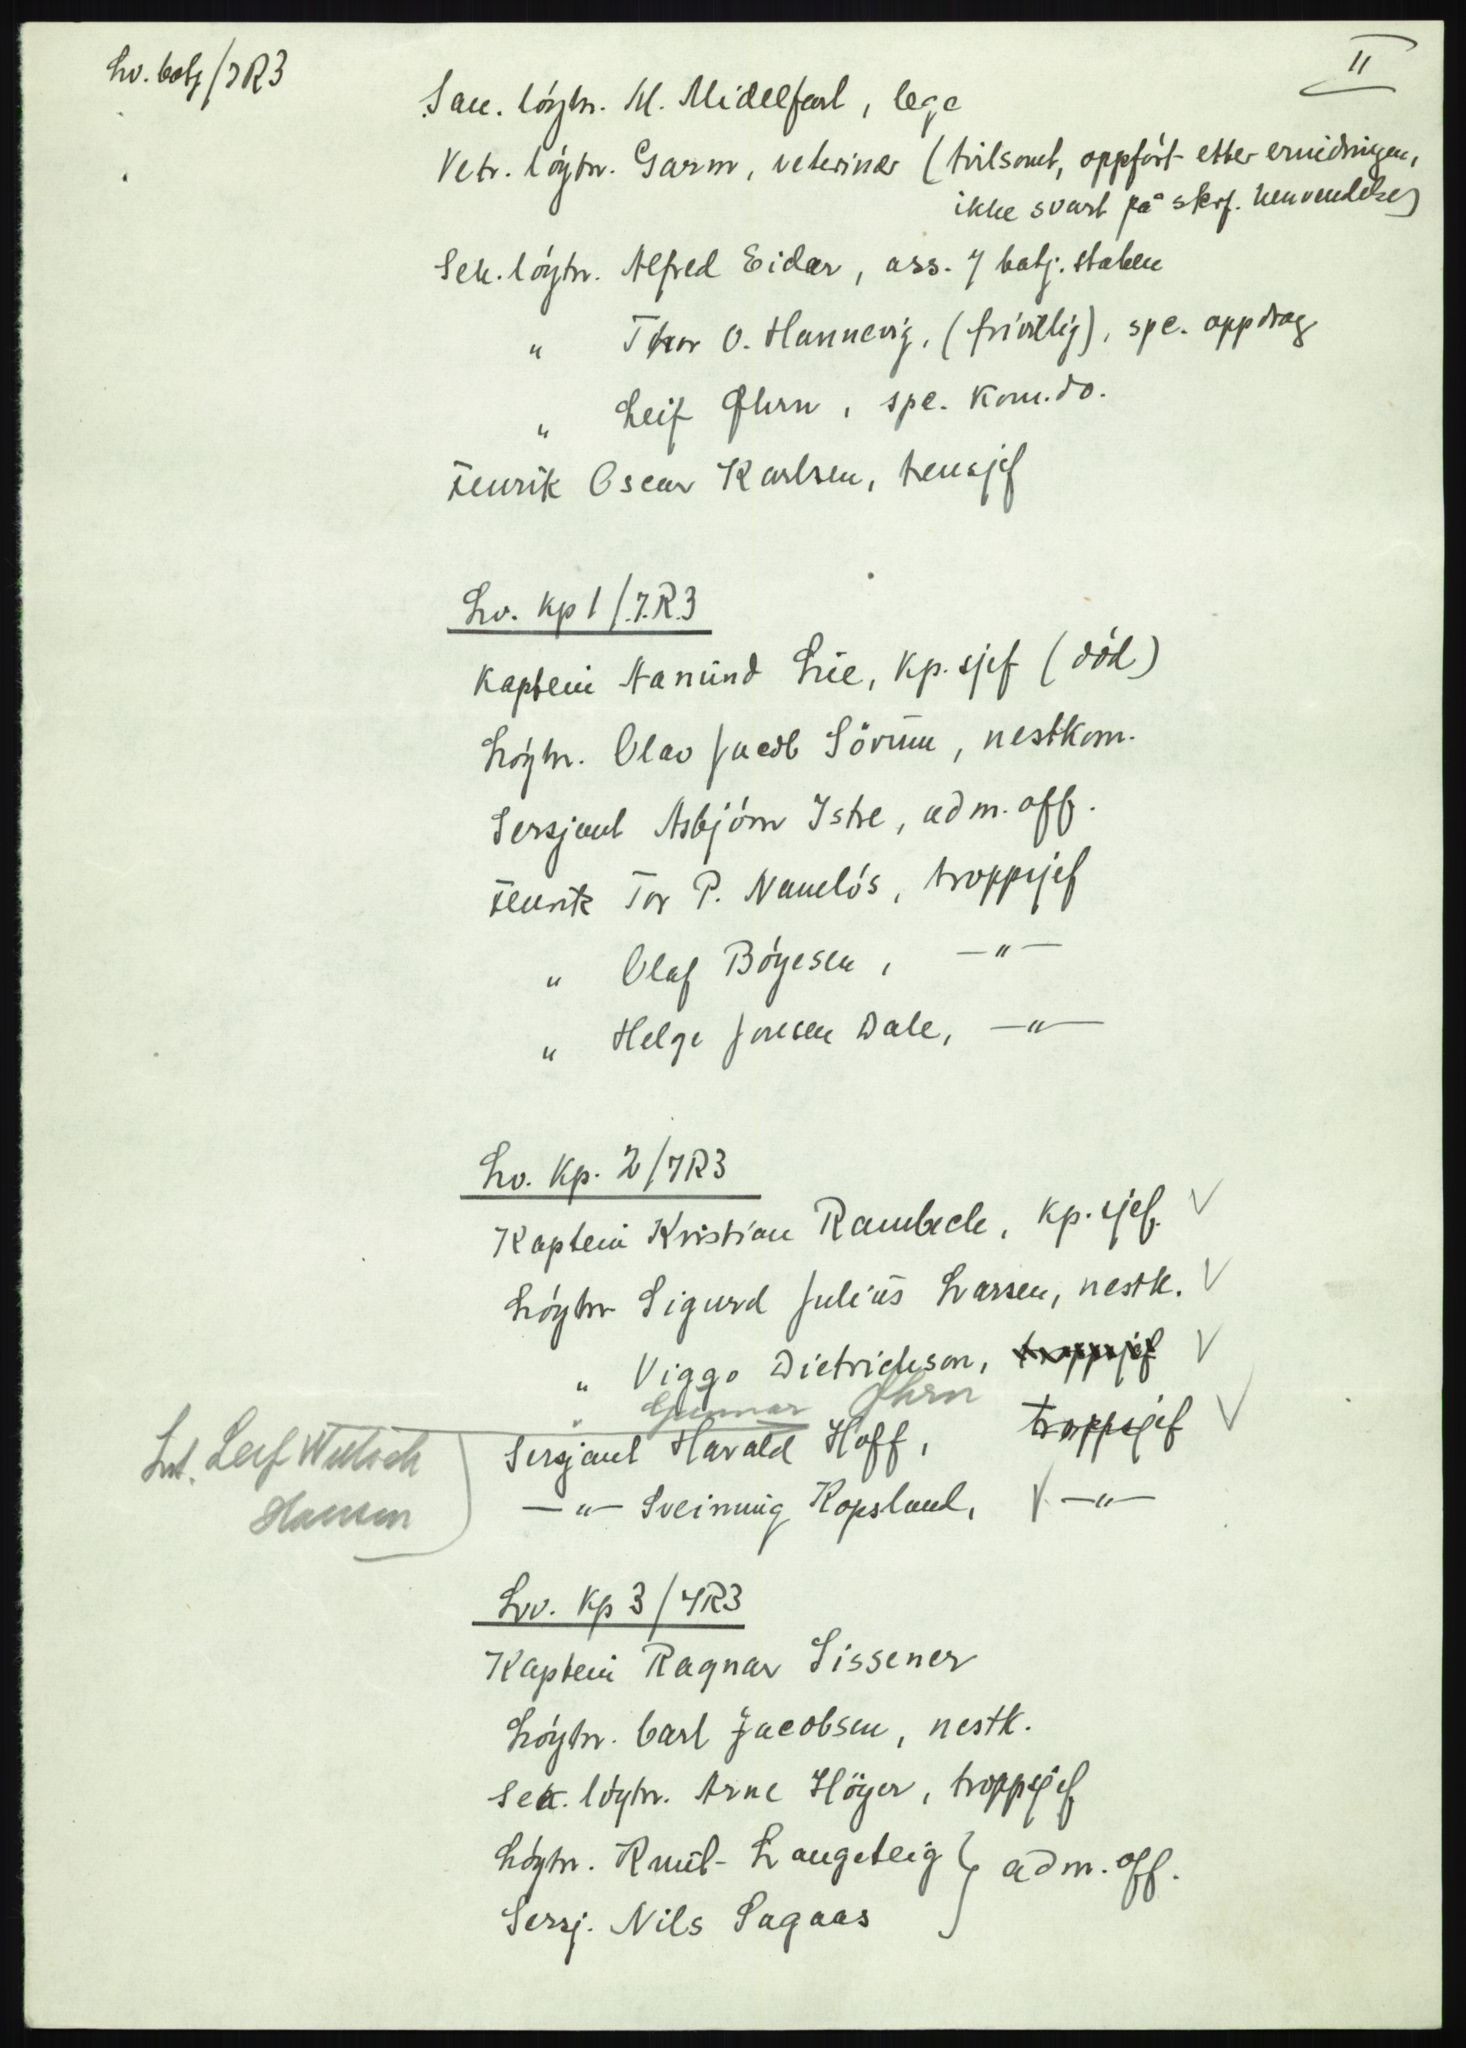 Lv. batj/7R3
II
San. löytn. M. Middelfart, lege
Vetr. löytn. Garm, veterinær (tvilsomt, oppfört etter erindringen,
ikke svart på skrf. henvendelse)
Sek. löytn. Alfred Eidar, ass. i batj. staben
" Thor O. Hannevig, (frivillig), spe. oppdrag
" Leif Öhrn, spe. kom.do.
Fenrik Oscar Karlsen, trensjef
Lv. Kp 1/.7.R.3
Kaptein Aamund Lie, Kp. sjef (död)
Löytn. Olav Jacob Sörum, nestkom.
Sersjant Asbjörn Istre, adm. off.
Fenrik Tor P. Namlös, troppsjef
" Olaf Böyesen, —"—
" Helge Jonsen Dale, —"—
Lv. Kp. 2/7R3
Kaptein Kristian Rambech, kp. sjef. V
Löytn Sigurd Julius Larsen, nestk. V
" Viggo Dietrichson, troppsjef V
" Gunnar Öhrn
Sersjant Harald Hoff, troppsjef V
Lnt. Leif
Hansen
—"— Sveinung Kopsland, V —"—
Lv. Kp 3/7R3
Kaptein Ragnar Sissener
Löytn. Carl Jacobsen, nestk.
Sek. löytn. Arne Höyer, troppsjef
Löytn. Knut Langeteig } adm. off.
Sersj. Nils Sagaas